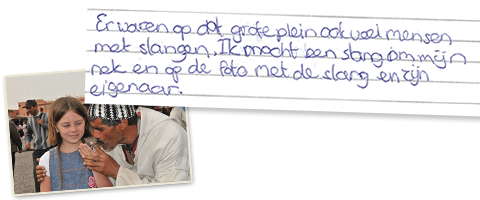 Er waren op dat grote plein ook veel mensen
met slangen. Ik mocht een slang om mijn
nek en op de foto met de slang en zijn
eigenaar.